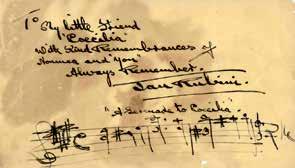 To My little Friend
"Coecilia"
With Kind Remembrances of
and You"
Always Remember.
Jan Rubini.
"A Serenade to Coecilia".